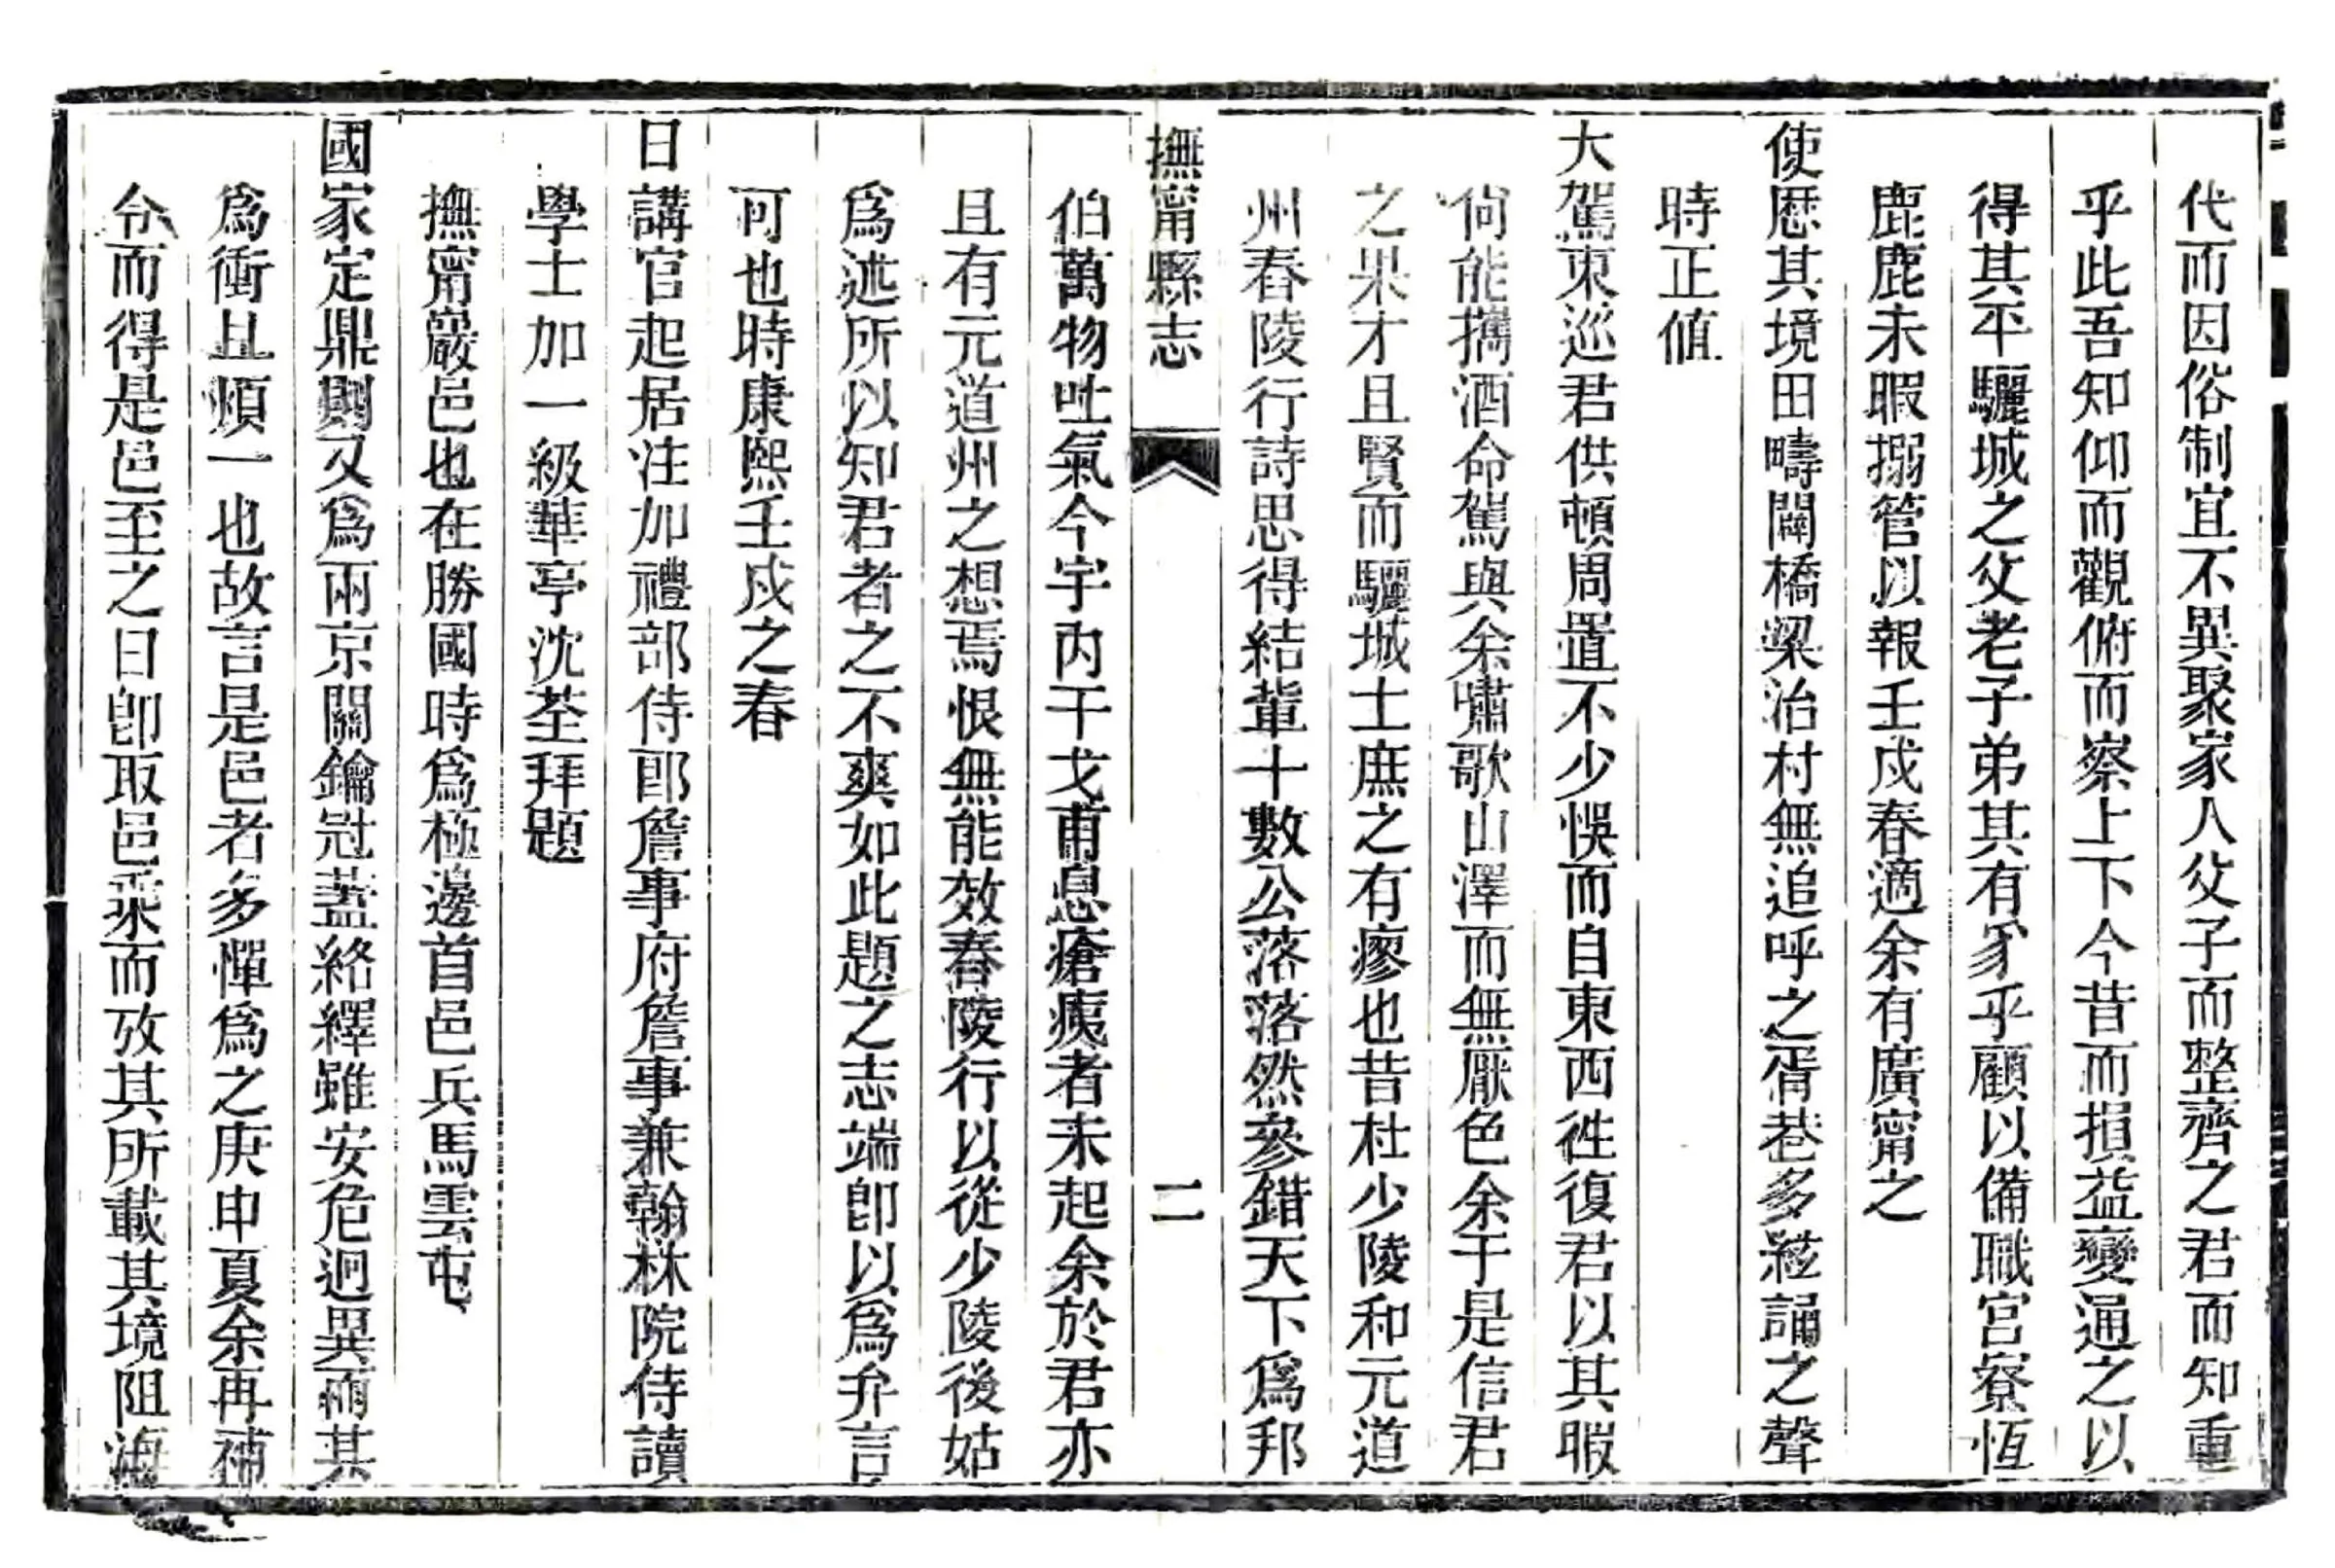 代而因俗制宜不異聚家人父子而整齊之君而知重
乎此吾知仰而觀俯而察上下今昔而損益變通之以
得其平驪城之父老子弟其有豸乎顧以備職宮寮恆
鹿鹿未暇搦管以報壬戍春適余有廣甯之
使歷其境田疇闢橋梁治村無追呼之胥巷多絃誦之聲
時正値
大駕東巡君供頓周置不少悞而自東西徃復君以其暇
尙能擕酒命駕與余嘯歌山澤而無厭色余于是信君
之果才且賢而驪城士庶之有瘳也昔杜少陵和元道
州舂陵行詩思得結輩十數公落落然參錯天下爲邦
撫甯縣志
二
伯萬物吐氣今宇內干戈甫息瘡痍者未起余於君亦
且有元道州之想焉恨無能效舂陵行以從少陵後姑
爲述所以知君者之不爽如此題之志端卽以爲弁言
可也時康熙壬戍之春
日講官起居注加禮部侍郎詹事府詹事兼翰林院侍讀
學士加一級華亭沈荃拜題
撫甯巖邑也在勝國時爲極邊首邑兵馬雲屯
國家定鼎則又爲兩京關鑰冠蓋絡繹雖安危迥異而其
爲衝且煩一也故言是邑者多憚爲之庚申夏余再補
令而得是邑至之日卽取邑乘而攷其所載其境阻海